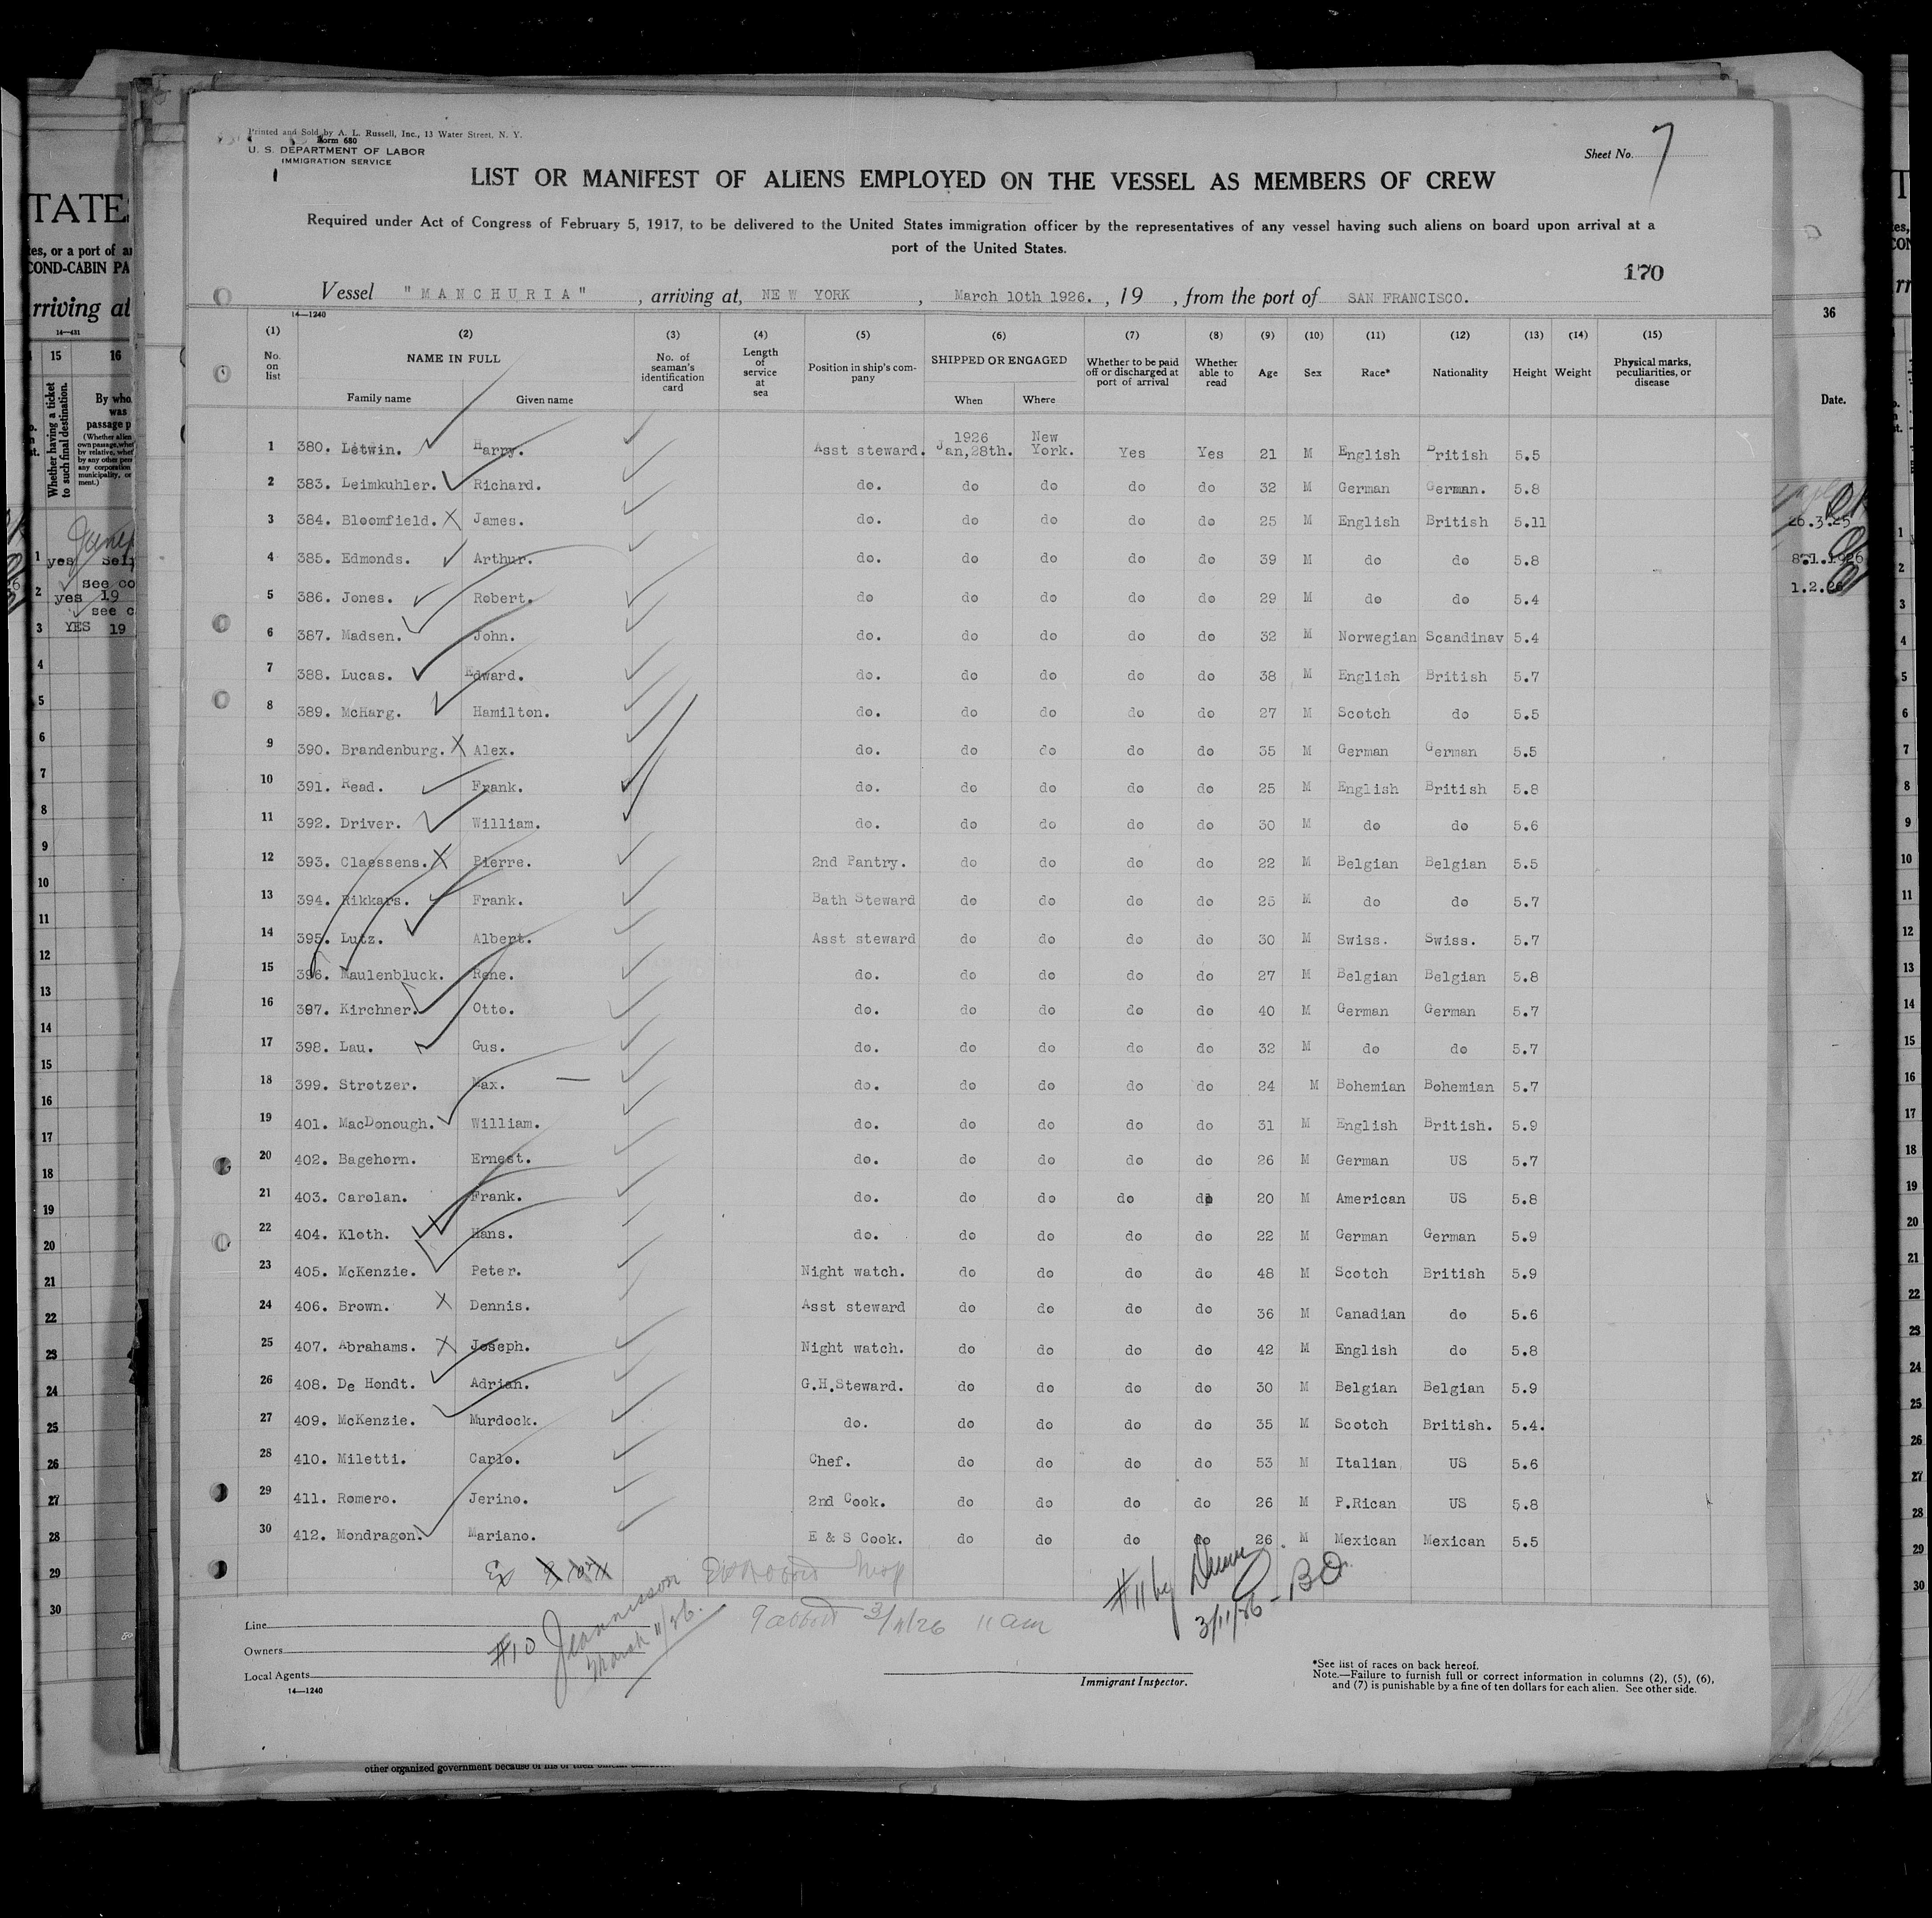 Printed and Sold by A. L. Russell, Inc., 13 Water Street, N. Y.
Form 680
U. S. DEPARTMENT OF LABOR
IMMIGRATION SERVICE
Sheet No. 7
LIST OR MANIFEST OF ALIENS EMPLOYED ON THE VESSEL AS MEMBERS OF CREW
Required under Act of Congress of February 5, 1917, to be delivered to the United States immigration officer by the representatives of any vessel having such aliens on board upon arrival at a
port of the United States.
170
Vessel "MANCHURIA", arriving at, NEW YORK, March 10th 1926., 19 , from the port of SAN FRANCISCO.
14—1240
(1) (2) (3) (4) (5) (6) (7) (8) (9) (10) (11) (12) (13) (14) (15)
No. on list NAME IN FULL Family name Given name No. of seaman's identification card Length of service at sea Position in ship's company SHIPPED OR ENGAGED When Where Whether to be paid off or discharged at port of arrival Whether able to read Age Sex Race* Nationality Height Weight Physical marks, peculiarities, or disease
1 380. Letwin. Harry. Asst steward. 1926 Jan,28th. New York. Yes Yes 21 M English British 5.5
2 383. Leimkuhler. Richard. do. do do do do 32 M German German. 5.8
3 384. Bloomfield. X James. do. do do do do 25 M English British 5.11
4 385. Edmonds. Arthur. do. do do do do 39 M do do 5.8
5 386. Jones. Robert. do do do do do 29 M do do 5.4
6 387. Madsen. John. do. do do do do 32 M Norwegian Scandinav 5.4
7 388. Lucas. Edward. do. do do do do 38 M English British 5.7
8 389. McHarg. Hamilton. do. do do do do 27 M Scotch do 5.5
9 390. Brandenburg. X Alex. do. do do do do 35 M German German 5.5
10 391. Read. Frank. do. do do do do 25 M English British 5.8
11 392. Driver. William. do. do do do do 30 M do do 5.6
12 393. Claessens. X Pierre. 2nd Pantry. do do do do 22 M Belgian Belgian 5.5
13 394. Rikkars. Frank. Bath Steward do do do do 25 M do do 5.7
14 395. Lutz. Albert. Asst steward do do do do 30 M Swiss. Swiss. 5.7
15 396. Maulenbluck. Rene. do. do do do do 27 M Belgian Belgian 5.8
16 397. Kirchner. Otto. do. do do do do 40 M German German 5.7
17 398. Lau. Gus. do. do do do do 32 M do do 5.7
18 399. Strotzer. Max. — do. do do do do 24 M Bohemian Bohemian 5.7
19 401. MacDonough. William. do. do do do do 31 M English British. 5.9
20 402. Bagehorn. Ernest. do. do do do do 26 M German US 5.7
21 403. Carolan. Frank. do. do do do do 20 M American US 5.8
22 404. Kloth. Hans. do. do do do do 22 M German German 5.9
23 405. McKenzie. Peter. Night watch. do do do do 48 M Scotch British 5.9
24 406. Brown. X Dennis. Asst steward do do do do 36 M Canadian do 5.6
25 407. Abrahams. X Joseph. Night watch. do do do do 42 M English do 5.8
26 408. De Hondt. Adrian. G.H.Steward. do do do do 30 M Belgian Belgian 5.9
27 409. McKenzie. Murdock. do. do do do do 35 M Scotch British. 5.4.
28 410. Miletti. Carlo. Chef. do do do do 53 M Italian US 5.6
29 411. Romero. Jerino. 2nd Cook. do do do do 26 M P.Rican US 5.8
30 412. Mondragon. Mariano. E & S Cook. do do do do 26 M Mexican Mexican 5.5
#11 by
3/11/26 - BO
3/11/26 11 am
#10
March 11/26.
Line
Owners
Local Agents
14—1240
Immigrant Inspector.
*See list of races on back hereof.
Note.—Failure to furnish full or correct information in columns (2), (5), (6),
and (7) is punishable by a fine of ten dollars for each alien. See other side.
TATE
tes, or a port of
COND-CABIN PA
rriving at
14—431
15 16
Whether having a ticket to such final destination.
By who
was
passage p
1 yes Self
see co
2 yes 19
see c
3 YES 19
36
Date.
26.3.25
8.1.1926
1.2.26
other organized government because of his or their official